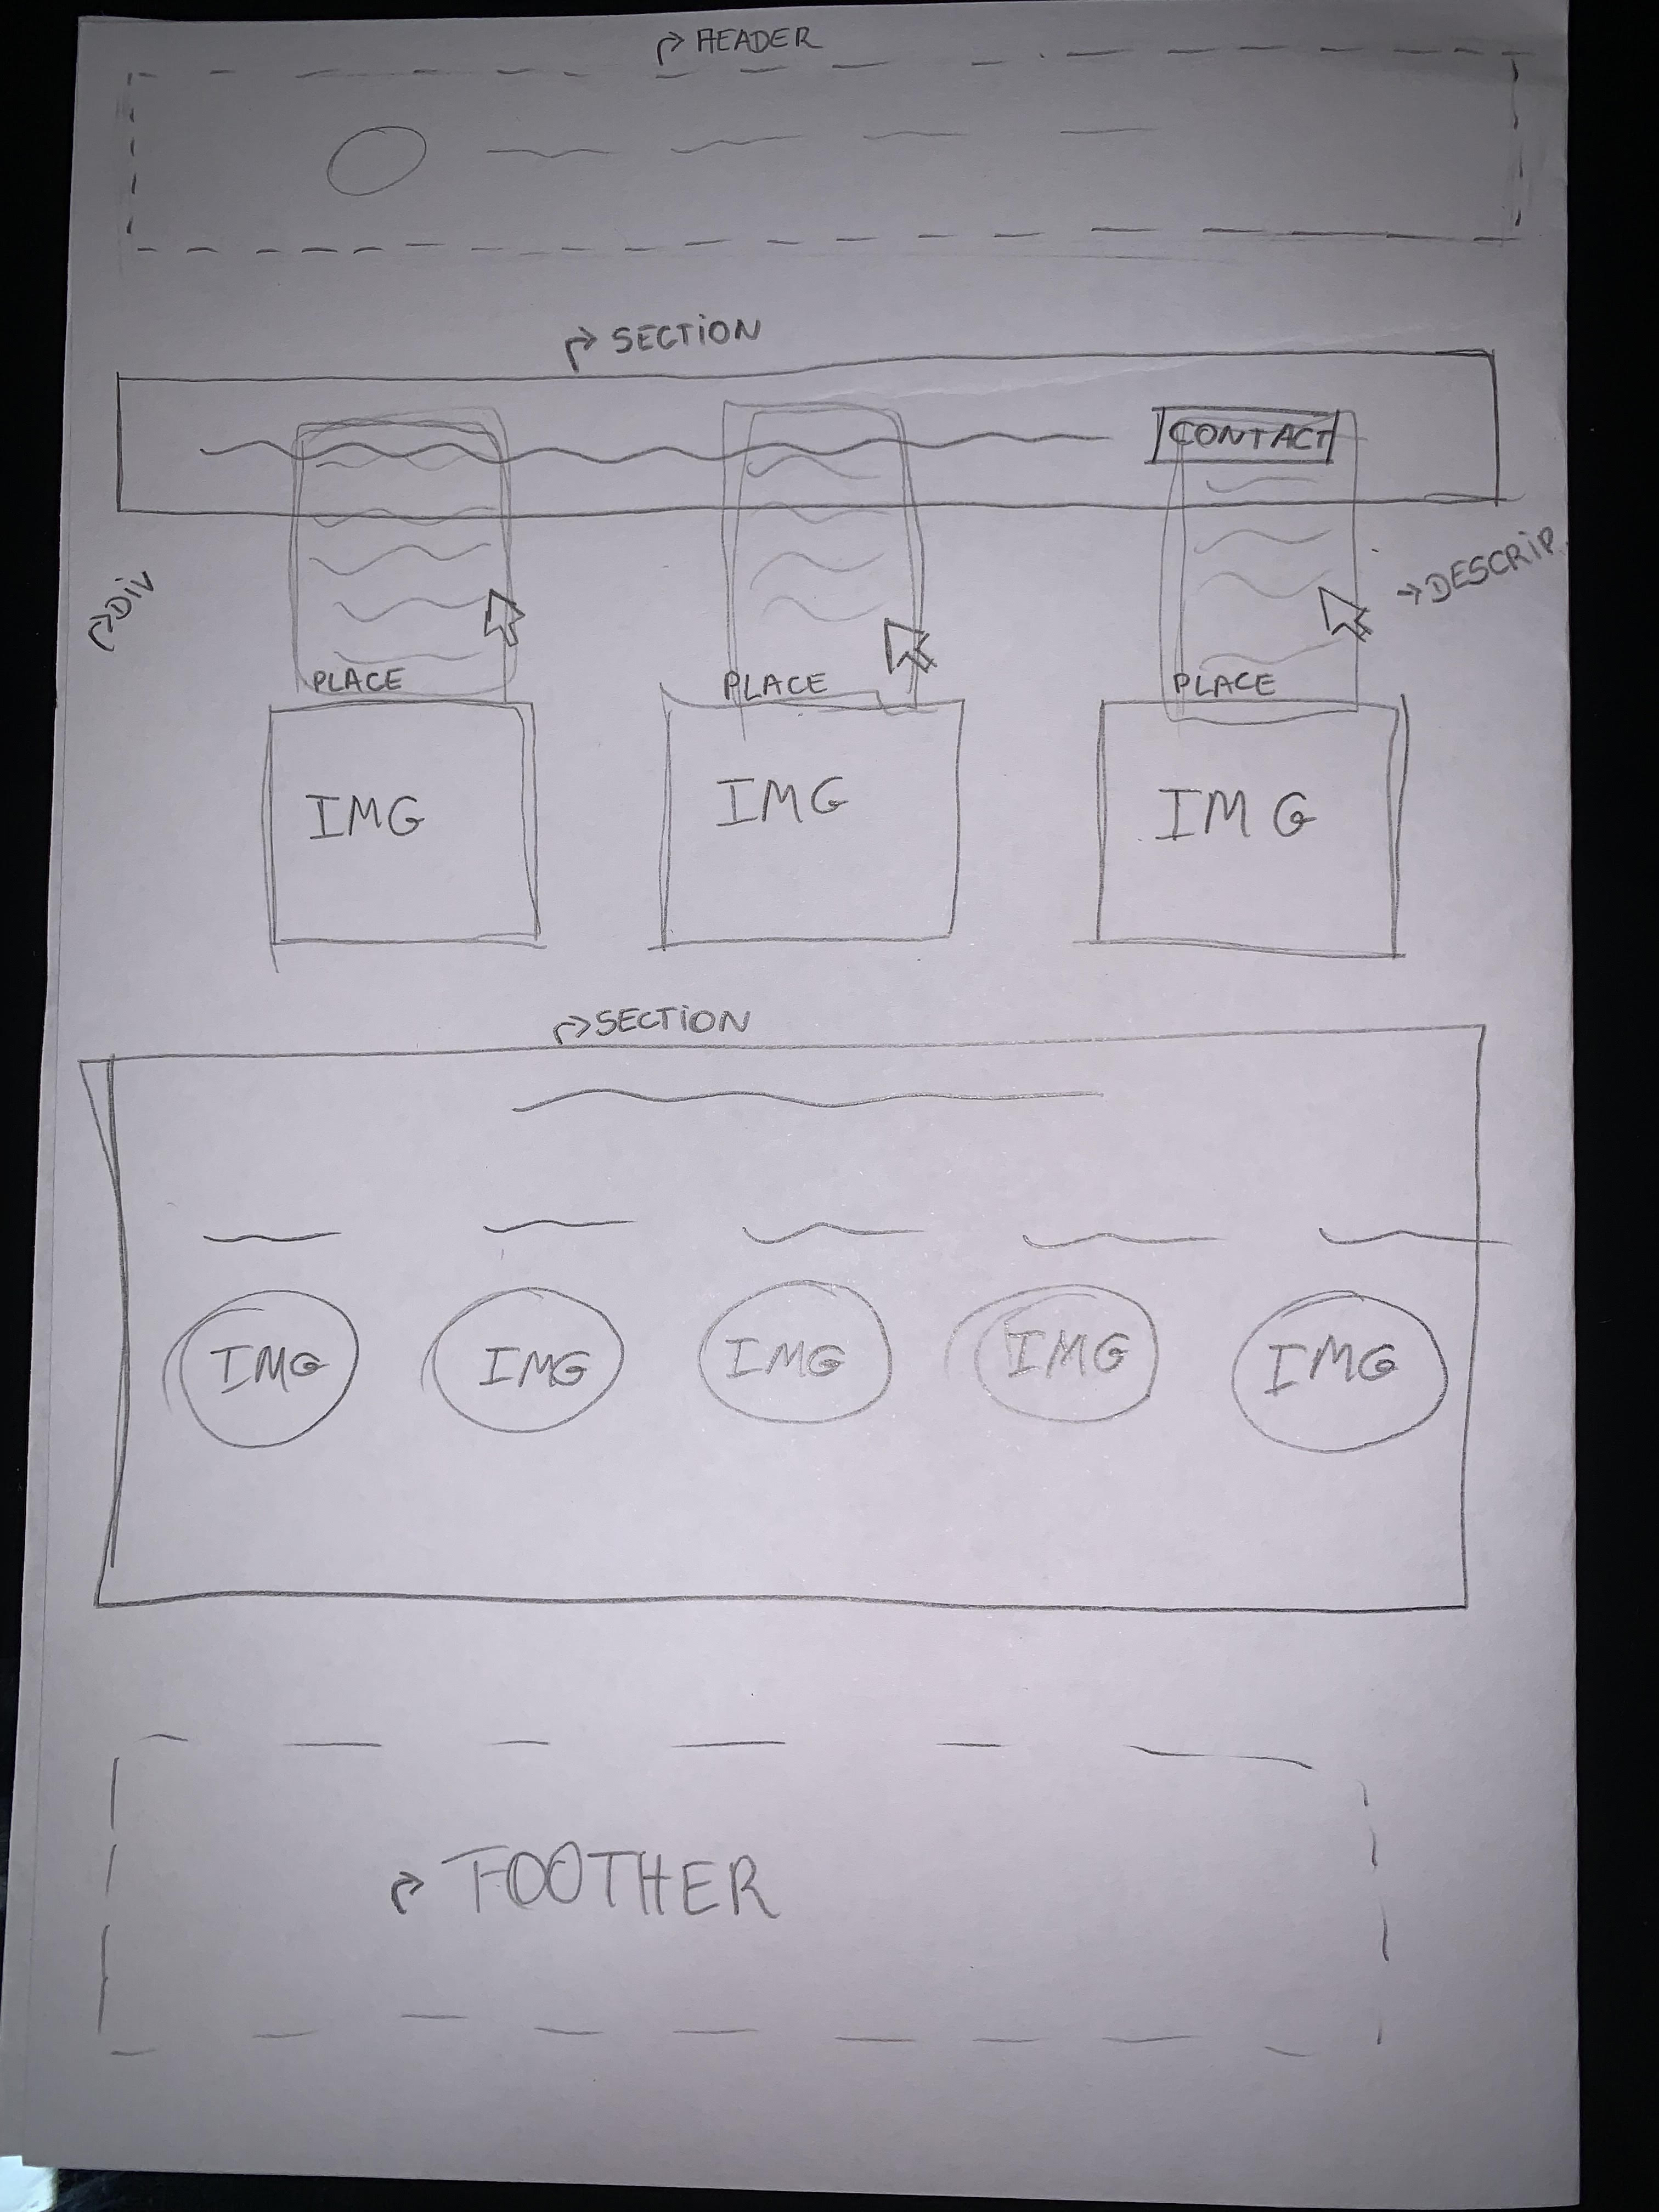 HEADER
SECTION
CONTACT
DIV
DESCRIP.
PLACE PLACE PLACE
IMG IMG IMG
SECTION
IMG IMG IMG IMG IMG
FOOTHER